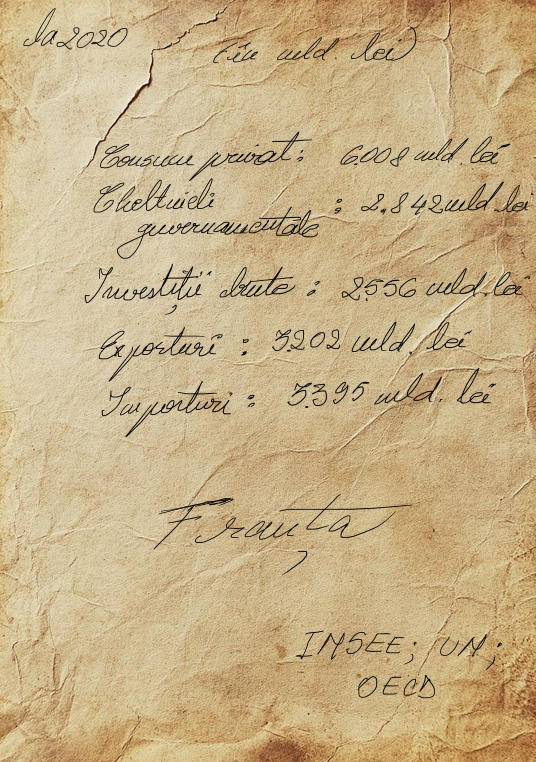 la 2020
(în mld. lei)
Consum privat: 6.008 mld. lei
Cheltuieli
guvernamentale : 2.842 mld. lei
Investiții brute : 2.556 mld. lei
Exporturi : 3.202 mld. lei
Importuri : 3.395 mld. lei
Franța
INSEE; UN;
OECD